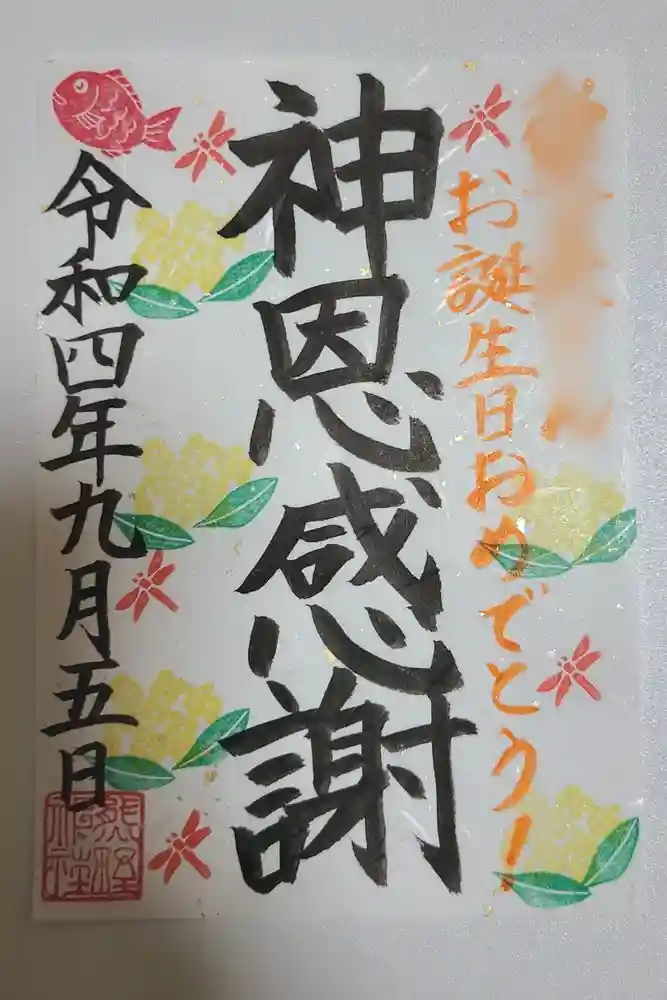 お誕生日おめでとう!
神恩感謝
令和四年九月五日
熊野
神社